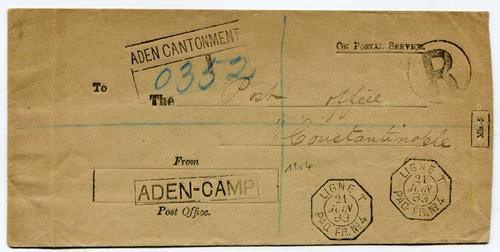 ADEN CANTONMENT
0352
ON POSTAL SERVICE.
R
To
The Post office
Constantinople
Mis-5
From
ADEN-CAMP
Post Office.
1204
LIGNE T
21
JUIN
83
PAQ. FR. Nº4
LIGNE T
21
JUIN
83
PAQ. FR. Nº4